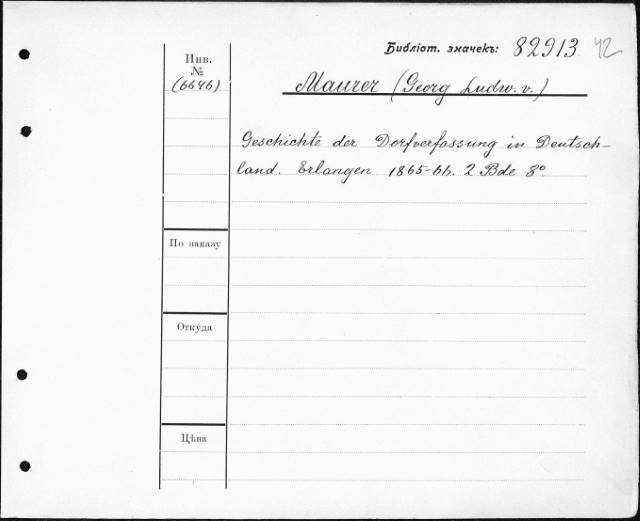 Библіот. значекъ: 82913 42
Инв.
№
(6646)
Maurer (Georg Ludw. v.)
Geschichte der Dorfverfassung in Deutsch-
land. Erlangen 1865-66. 2 Bde 8°
По заказу
Откуда
Цѣна